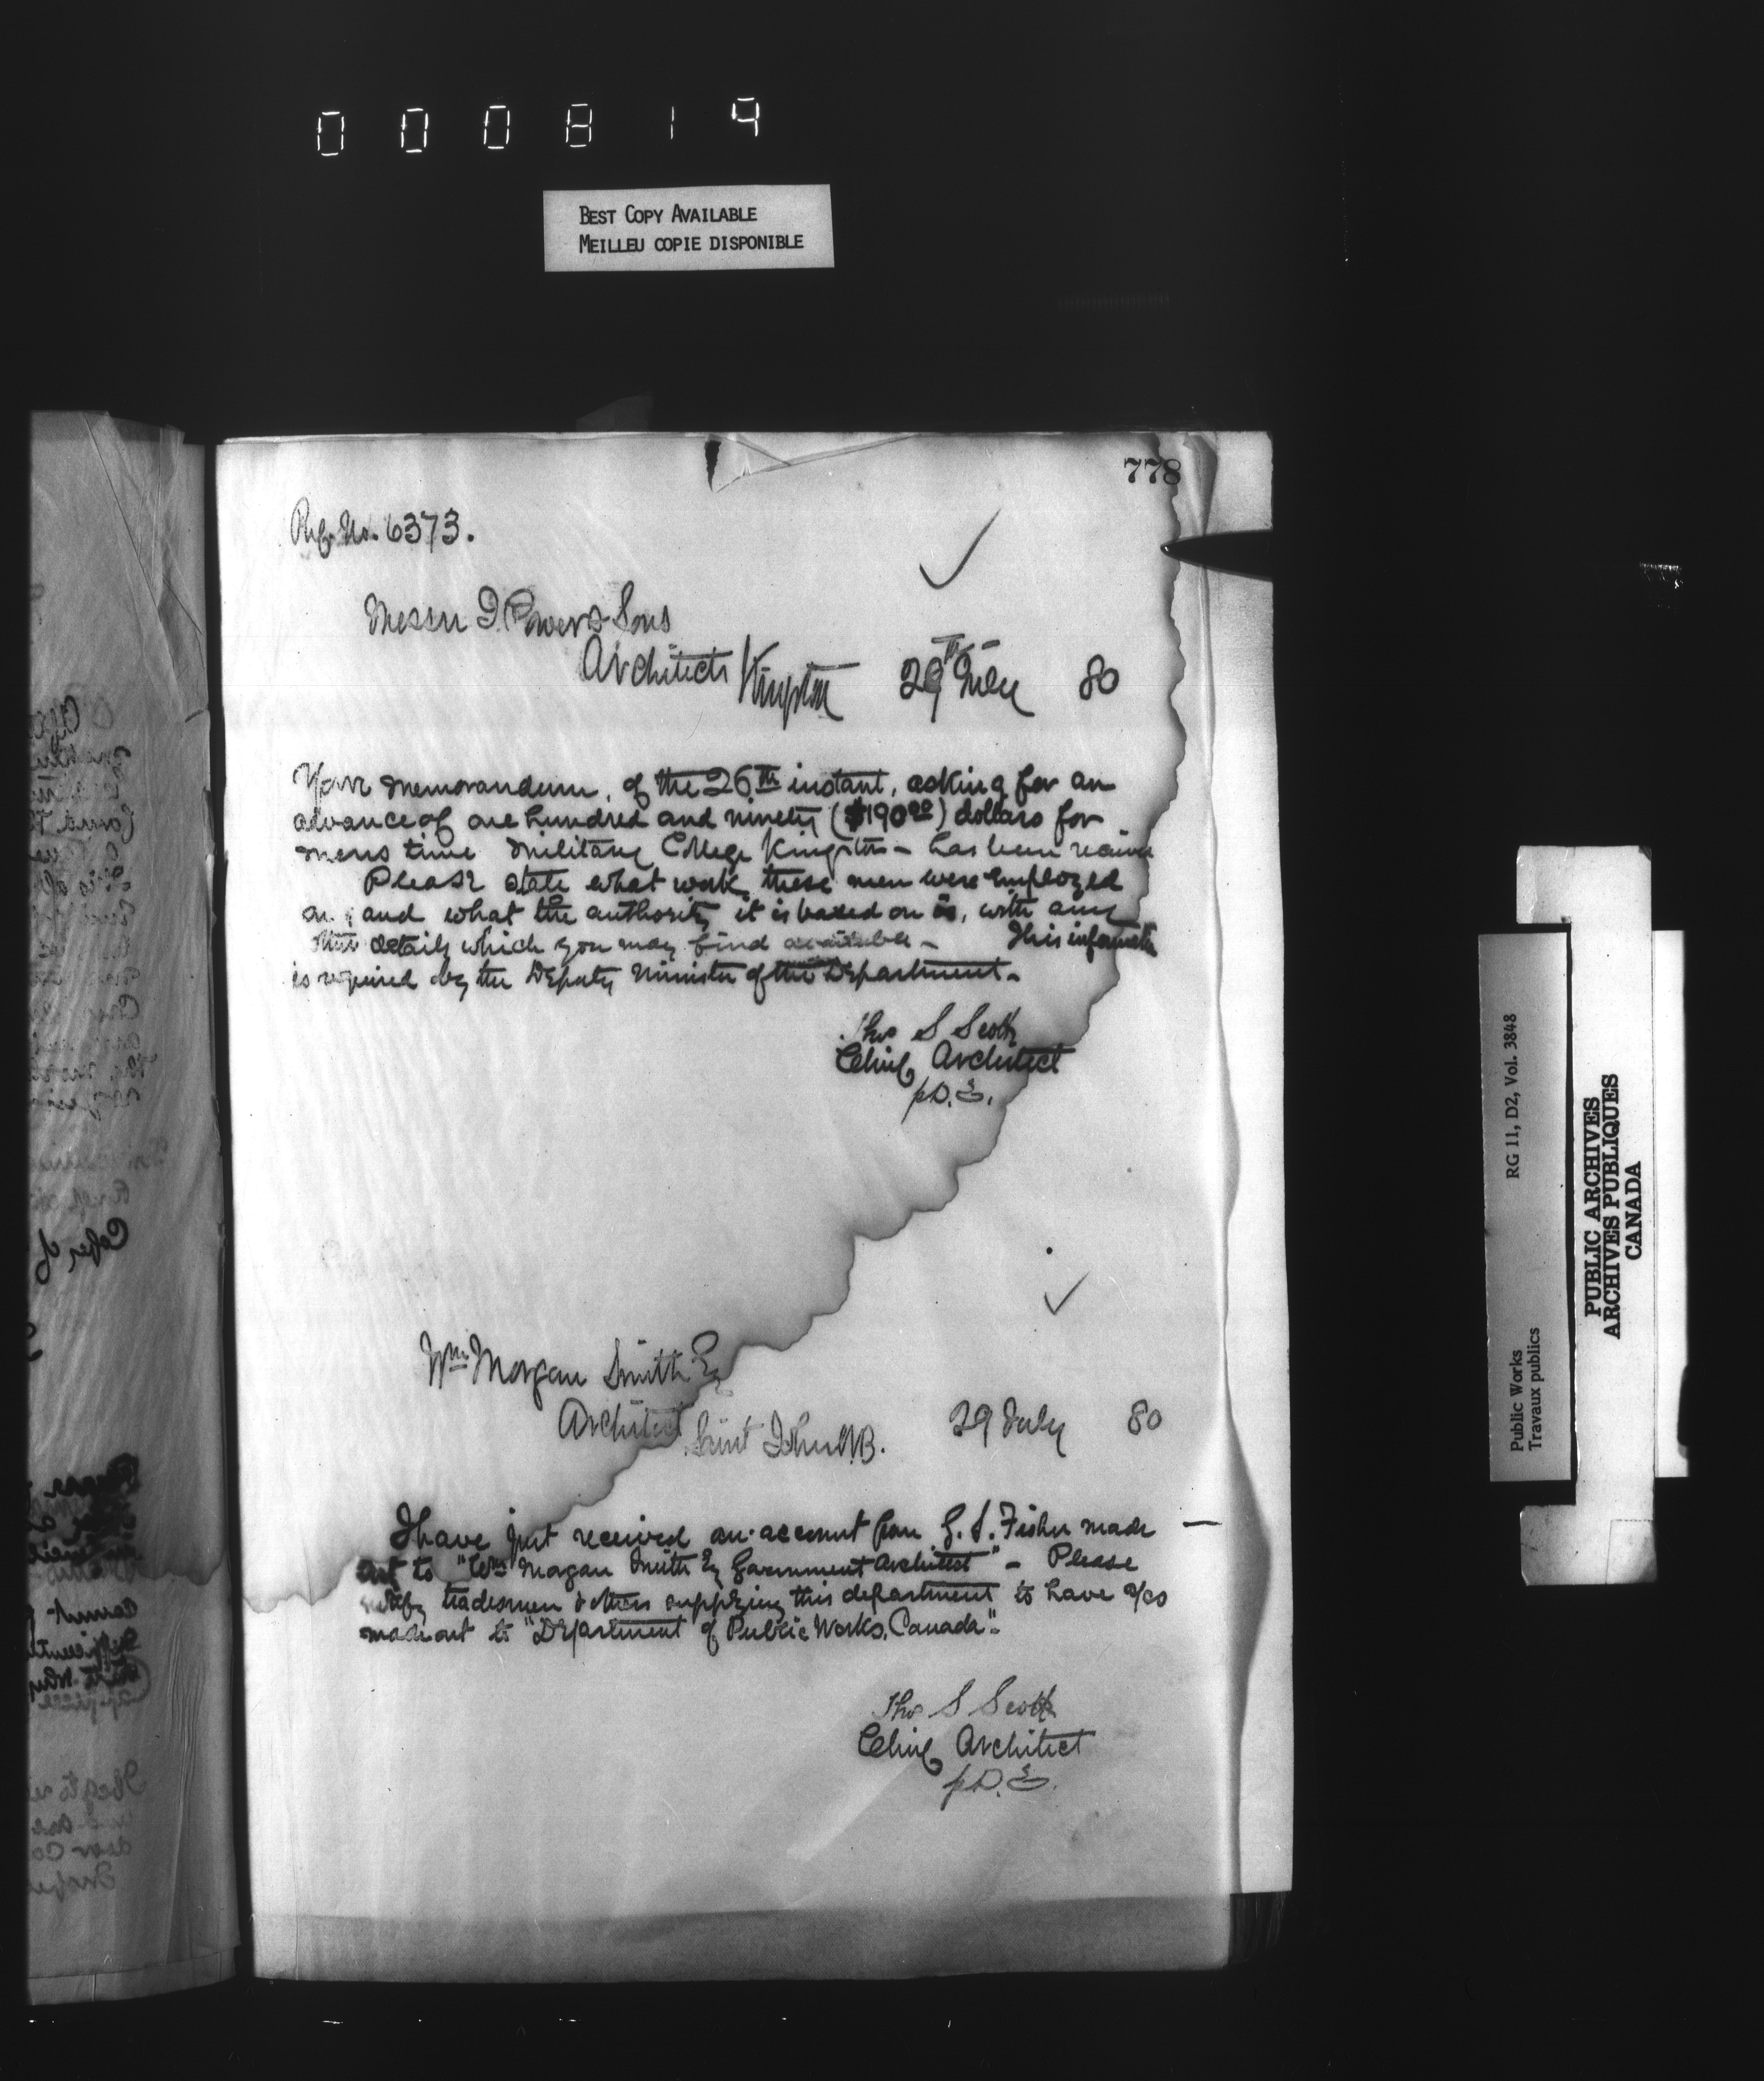 000819
BEST COPY AVAILABLE
MEILLEU COPIE DISPONIBLE
778
Ref. No. 6373.
Messrs Power & Sons
Architects Kingston 29th July 80
Your memorandum, of the 26th instant, asking for an
advance of one hundred and ninety ($190.00) dollars for
mens time Military College Kingston - has been receive
Please state what work these men were employed
on, and what the authority it is based on is, with any
other details which you may find available - This informatio
is required by the Deputy Minister of the Department -
Thos S Scott
Chief Architect
p D. E.
Wm Morgan Smith Eq
Architect Saint John N.B. 29 July 80
I have just received an account from G. S. Fisher made
out to "Wm Morgan Smith Eq Government Architect" - Please
notify tradesmen & others supplying this department to have a/cs
made out to "Department of Public Works, Canada".
Thos S Scott
Chief Architect
p D. E.
RG 11, D2, Vol. 3848
Public Works
Travaux publics
PUBLIC ARCHIVES
ARCHIVES PUBLIQUES
CANADA